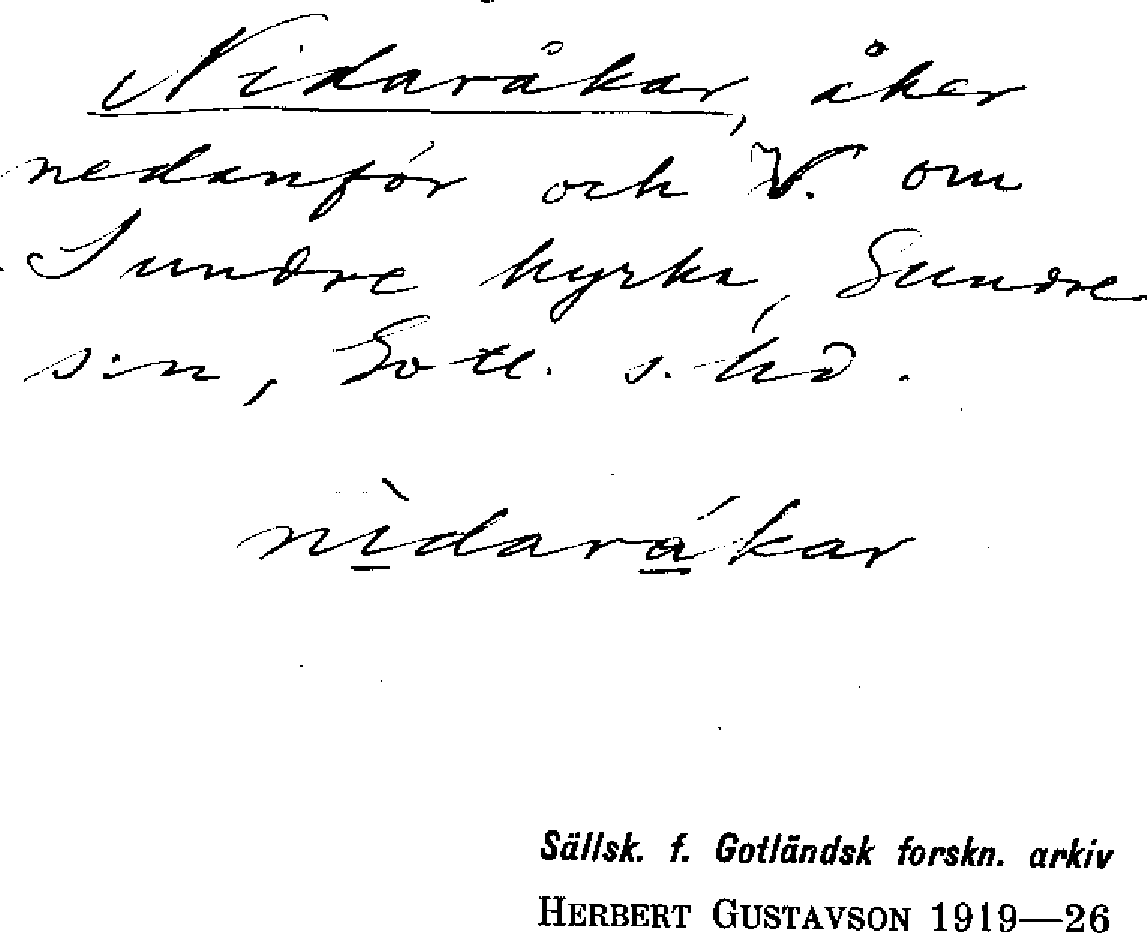 Nidaråkar, åker
nedanför och V. om
Sundre kyrka, Sundre
s:n, Gotl. s. hd.
nìdaràkar
Sällsk. f. Gotländsk forskn. arkiv
HERBERT GUSTAVSON 1919—26